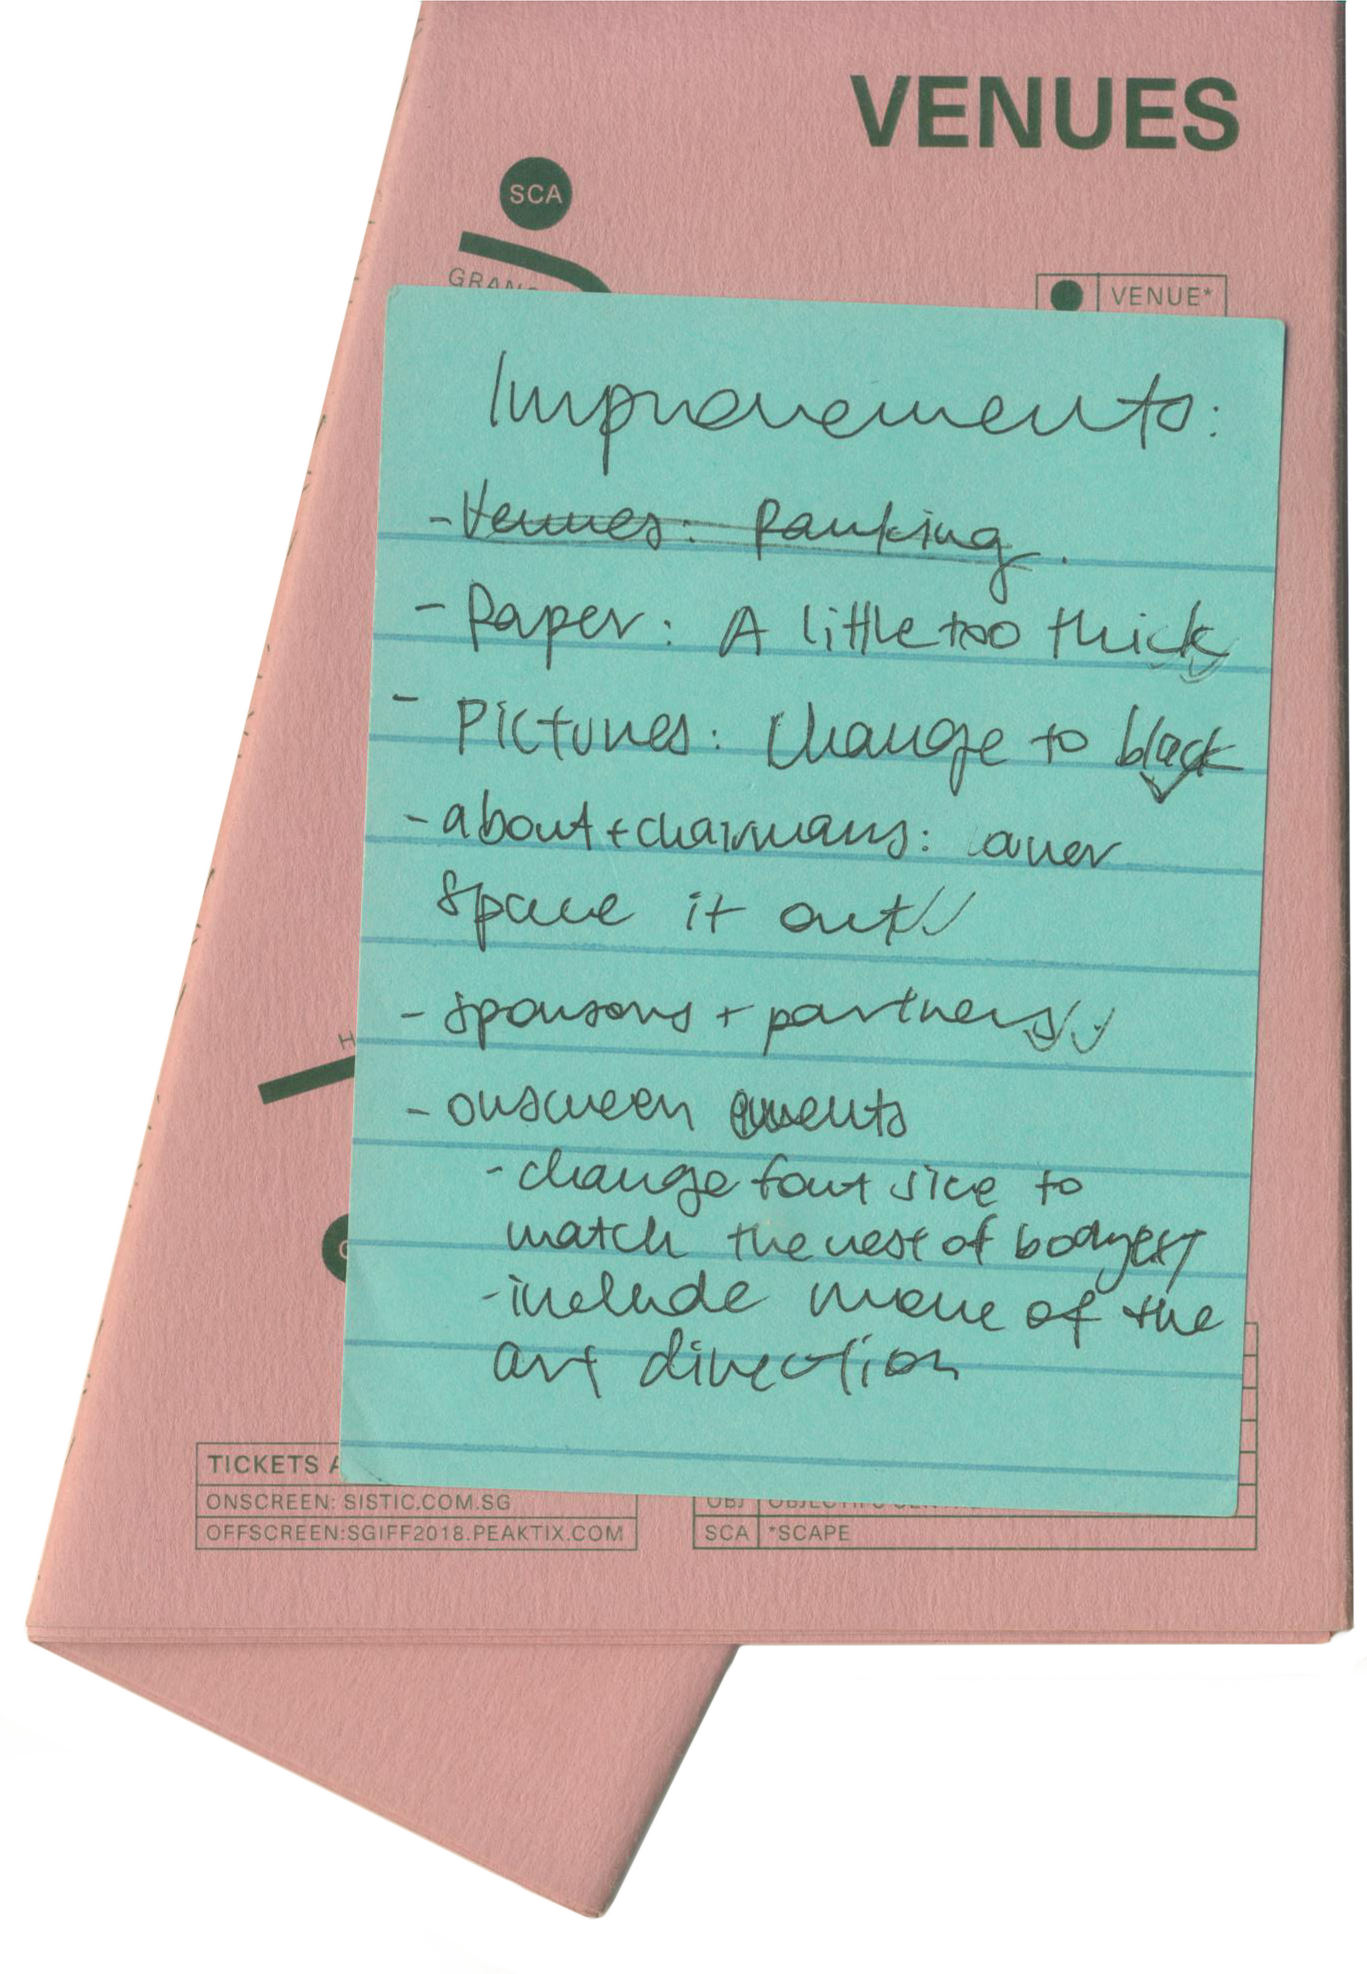 VENUES
SCA
VENUE*
Improvements:
- Venues: Ranking.
- Paper: A little too thick
- Pictures: Change to black
- about + chairmans:
space it out
- sponsors + partners
- onscreen events
- change font size to
match the rest of
- include more of the
art direction
TICKETS
ONSCREEN: SISTIC.COM.SG
OFFSCREEN:SGIFF2018.PEAKTIX.COM
OBJ
SCA *SCAPE